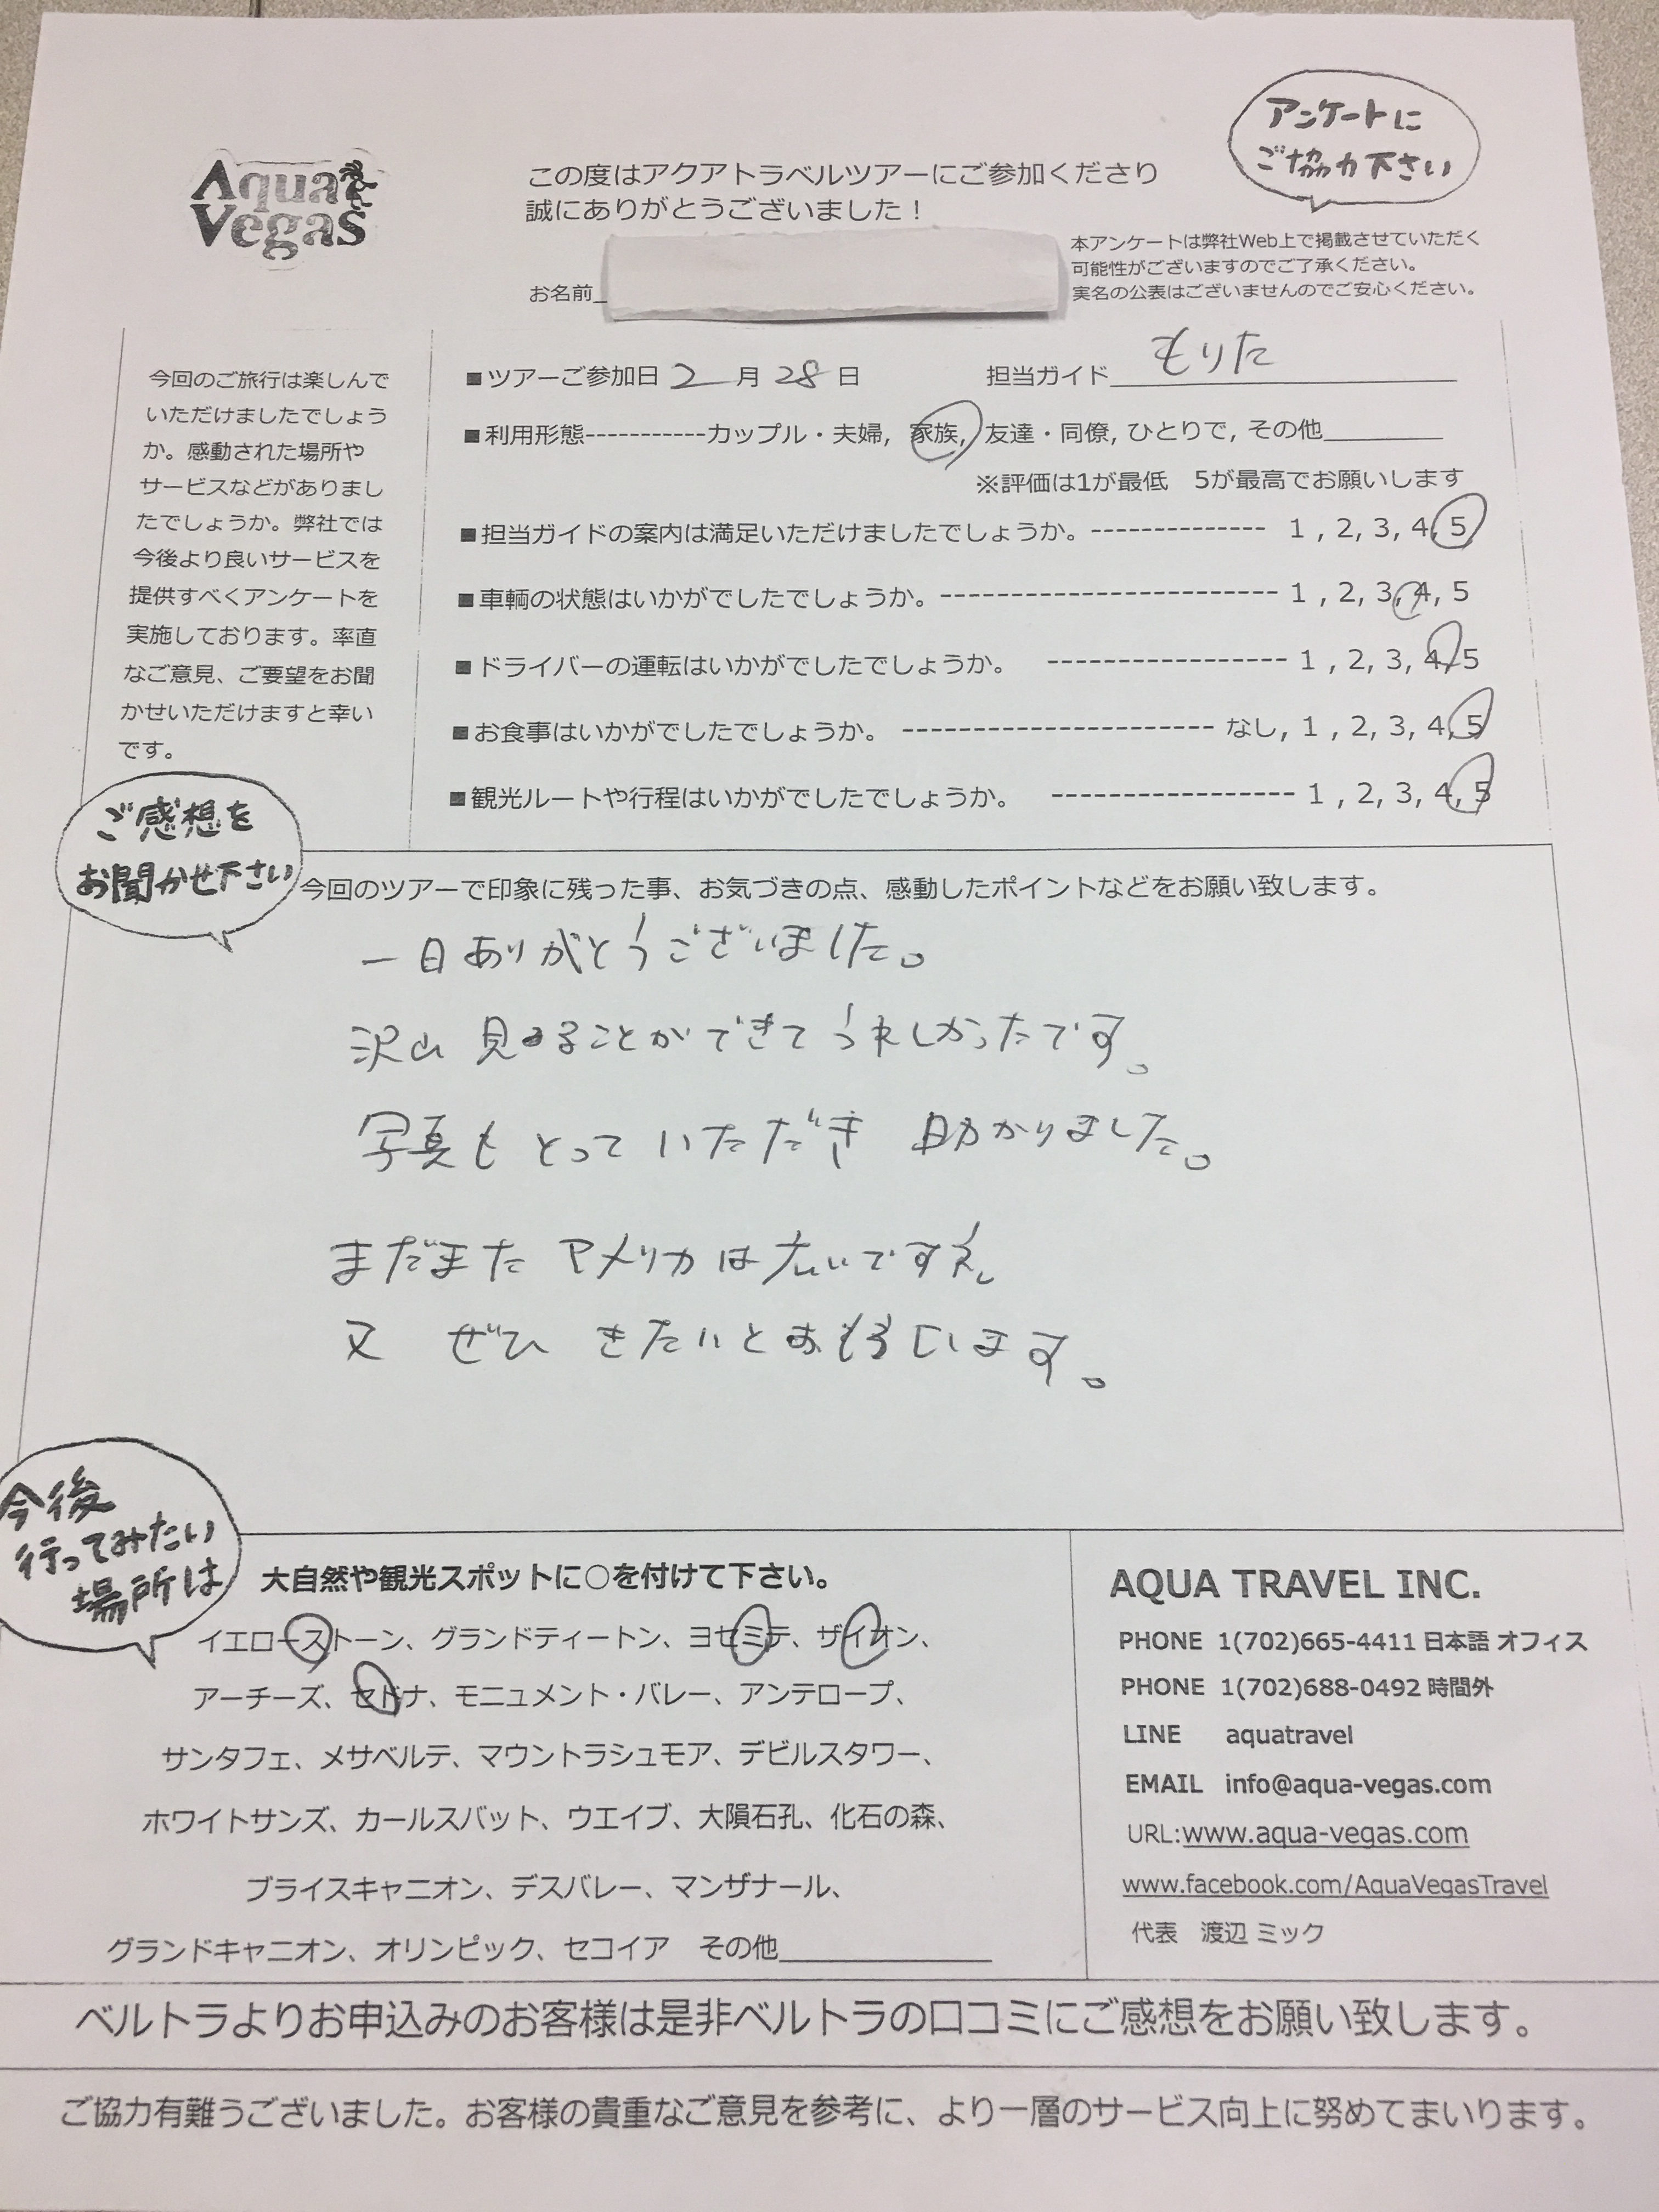 アンケートに
ご協力下さい
Aqua
Vegas
この度はアクアトラベルツアーにご参加くださり
誠にありがとうございました！
お名前
本アンケートは弊社Web上で掲載させていただく
可能性がございますのでご了承ください。
実名の公表はございませんのでご安心ください。
今回のご旅行は楽しんで
いただけましたでしょう
か。感動された場所や
サービスなどがありまし
たでしょうか。弊社では
今後より良いサービスを
提供すべくアンケートを
実施しております。率直
なご意見、ご要望をお聞
かせいただけますと幸い
です。
■ツアーご参加日 2 月 28 日 担当ガイド もりた
■利用形態-----------カップル・夫婦, 家族, 友達・同僚, ひとりで, その他
※評価は1が最低 5が最高でお願いします
■担当ガイドの案内は満足いただけましたでしょうか。-------------- 1 , 2, 3, 4, 5
■車輌の状態はいかがでしたでしょうか。------------------------- 1 , 2, 3, 4, 5
■ドライバーの運転はいかがでしたでしょうか。 ----------------- 1 , 2, 3, 4, 5
■お食事はいかがでしたでしょうか。 ---------------------- なし, 1 , 2, 3, 4, 5
■観光ルートや行程はいかがでしたでしょうか。 ----------------- 1 , 2, 3, 4, 5
ご感想を
お聞かせ下さい
今回のツアーで印象に残った事、お気づきの点、感動したポイントなどをお願い致します。
一日ありがとうございました。
沢山 見ることができて うれしかったです。
写真も とって いただき 助かりました。
まだまた アメリカは広いですね。
又 ぜひ きたいとおもいます。
今後
行ってみたい
場所は
大自然や観光スポットに○を付けて下さい。
イエローストーン、グランドティートン、ヨセミテ、ザイオン、
アーチーズ、セドナ、モニュメント・バレー、アンテロープ、
サンタフェ、メサベルテ、マウントラシュモア、デビルスタワー、
ホワイトサンズ、カールスバット、ウエイブ、大隕石孔、化石の森、
ブライスキャニオン、デスバレー、マンザナール、
グランドキャニオン、オリンピック、セコイア その他
AQUA TRAVEL INC.
PHONE 1(702)665-4411 日本語 オフィス
PHONE 1(702)688-0492 時間外
LINE aquatravel
EMAIL info@aqua-vegas.com
URL:www.aqua-vegas.com
www.facebook.com/AquaVegasTravel
代表 渡辺 ミック
ベルトラよりお申込みのお客様は是非ベルトラの口コミにご感想をお願い致します。
ご協力有難うございました。お客様の貴重なご意見を参考に、より一層のサービス向上に努めてまいります。